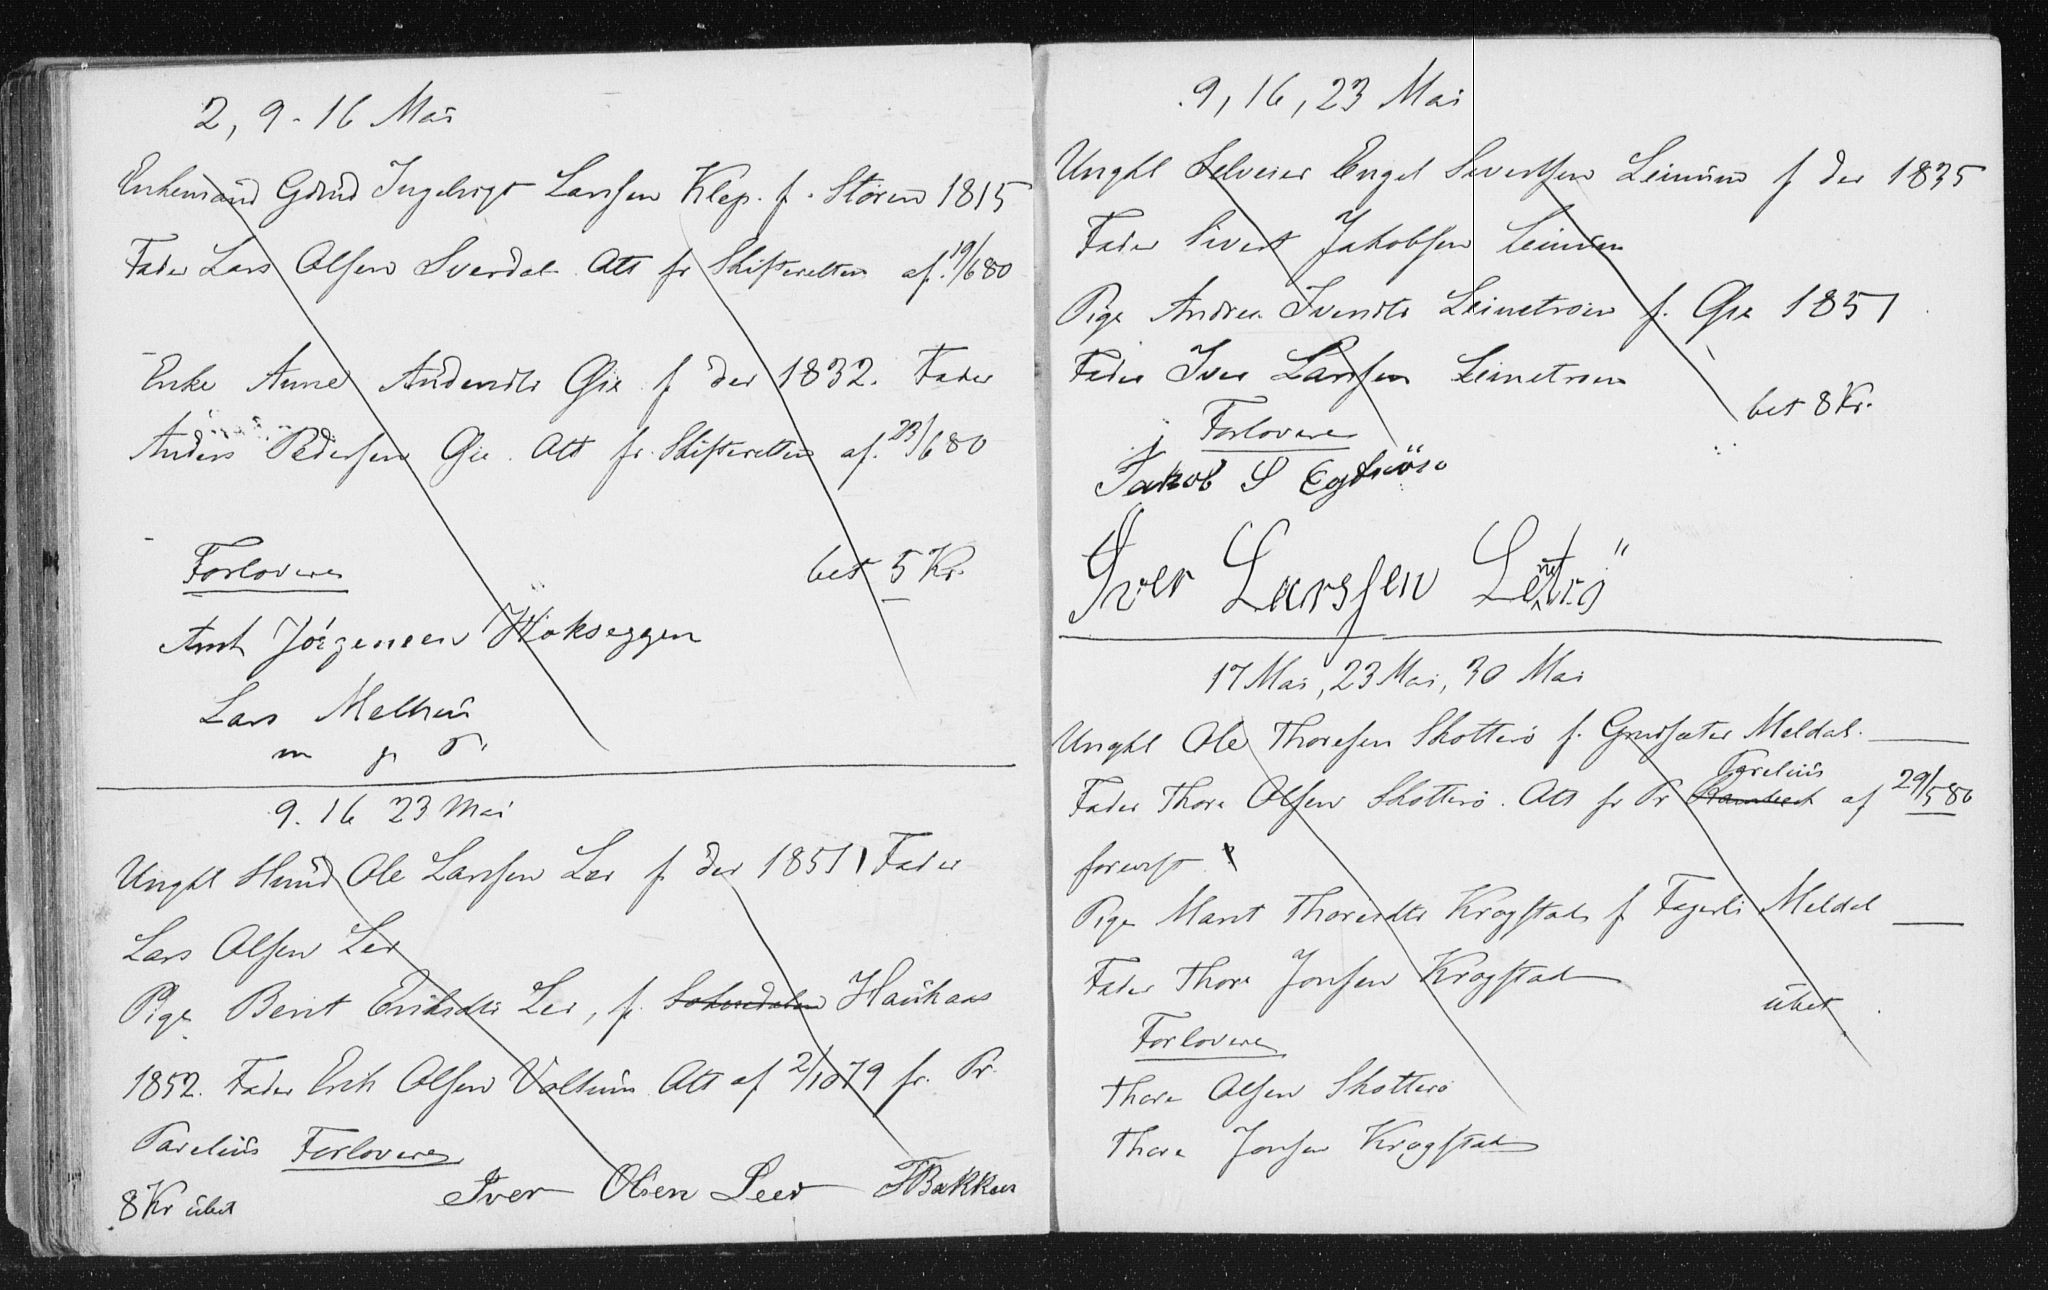 2, 9 - 16 Mai
Enkemand Gdmd Ingebrigt Larssen Klep. f. Støren 1815
Fader Lars Olsen Sverdal. Att fr Skifteretten af 19/6 80
Enke Anne Andersdtr Gie f der 1832. Fader
Anders Pedersen Gie. Att fr. Skifteretten af. 23/6 80
Forlovere
bet 5 Kr.
Arnt Jörgensen Hokseggen
Lars Melhus
m p P.
9. 16 23 Mai
Ungkl Smd Ole Larssen Ler f der 1851 Fader
Lars Olsen Ler
Pige Berit Eriksdtr Ler, f. Soknedalen Haukaas
1852. Fader Erik Olsen Volhun Att af 2/10 79 fr. Pr.
Parelius Forlovere
8 Kr übet
Iver Olsen Leer
T Bakken
9, 16, 23 Mai
Ungkl Selveier Engel Sivertsen Leinum f der 1835
Fader Sivert Jakobsen Leinum
Pige Andrea Iversdtr Leinetrøen f. Gie 1851
Fader Iver Larssen Leinetrøen
bet 8 Kr.
Forlovere
Jakob S
Iver Larssen Leinetrö
17 Mai, 23 Mai, 30 Mai
Ungkl Ole Thoresen Skotterø f. Grudsæter Meldal. —
Fader Thore Olsen Skotterø. Att fr Pr Parelius af 29/5 80
forevist
Pige Marit Thoresdtr Krogstad f Fagerli Meldal —
Fader Thore Jonsen Krogstad
übet
Forlovere
Thore Olsen Skotterø
Thore Jonsen Krogstad